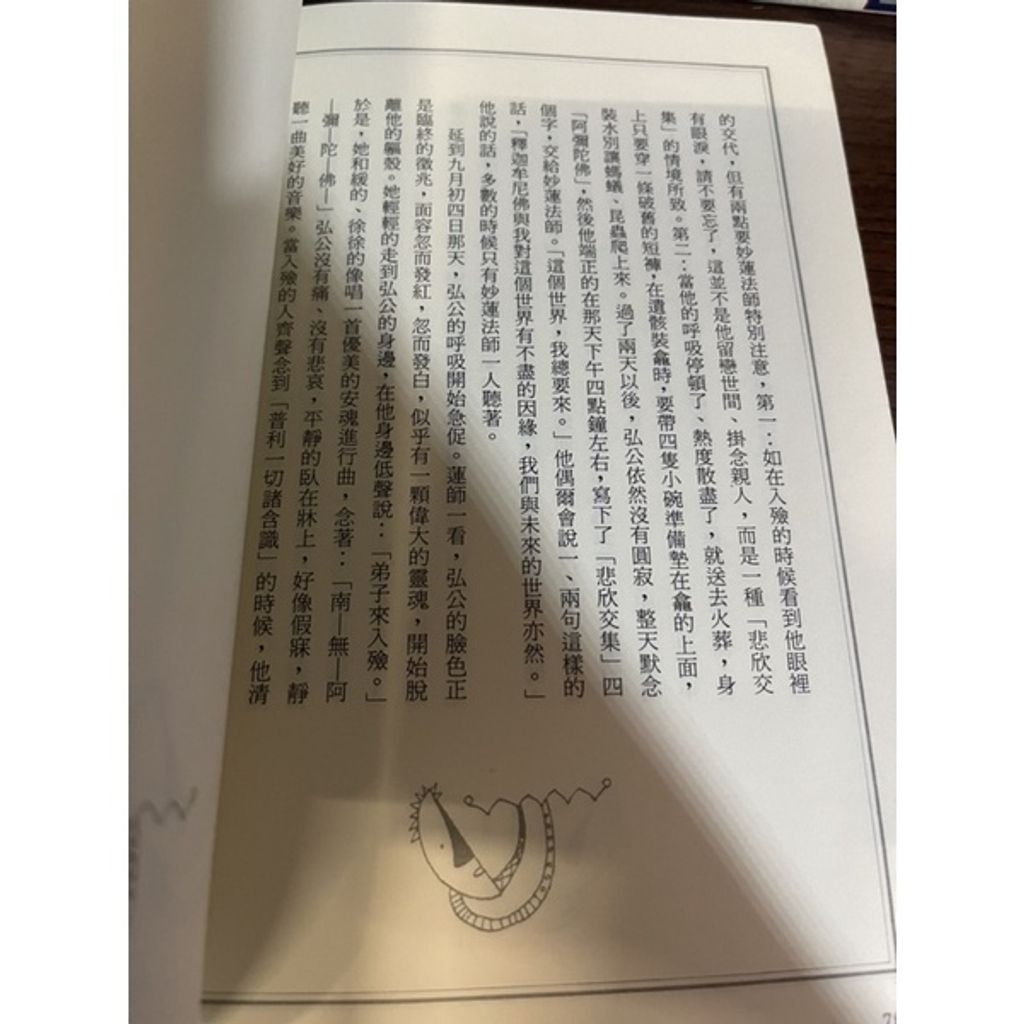 的交代，但有兩點要妙蓮法師特別注意，第一：如在入殮的時候看到他眼裡
有眼淚，請不要忘了，這並不是他留戀世間、掛念親人，而是一種「悲欣交
集」的情境所致。第二：當他的呼吸停頓了、熱度散盡了，就送去火葬，身
上只要穿一條破舊的短褲，在遺骸裝龕時，要帶四隻小碗準備墊在龕的上面，
裝水別讓螞蟻、昆蟲爬上來。過了兩天以後，弘公依然沒有圓寂，整天默念
「阿彌陀佛」，然後他端正的在那天下午四點鐘左右，寫下了「悲欣交集」四
個字，交給妙蓮法師。「這個世界，我總要來。」他偶爾會說一、兩句這樣的
話，「釋迦牟尼佛與我對這個世界有不盡的因緣，我們與未來的世界亦然。」
他說的話，多數的時候只有妙蓮法師一人聽著。
延到九月初四日那天，弘公的呼吸開始急促。蓮師一看，弘公的臉色正
是臨終的徵兆，面容忽而發紅，忽而發白，似乎有一顆偉大的靈魂，開始脫
離他的軀殼。她輕輕的走到弘公的身邊，在他身邊低聲說：「弟子來入殮。」
於是，她和緩的、徐徐的像唱一首優美的安魂進行曲，念著：「南—無—阿
—彌—陀—佛—」弘公沒有痛、沒有悲哀，平靜的臥在牀上，好像假寐，靜
聽一曲美好的音樂。當入殮的人齊聲念到「普利一切諸含識」的時候，他清